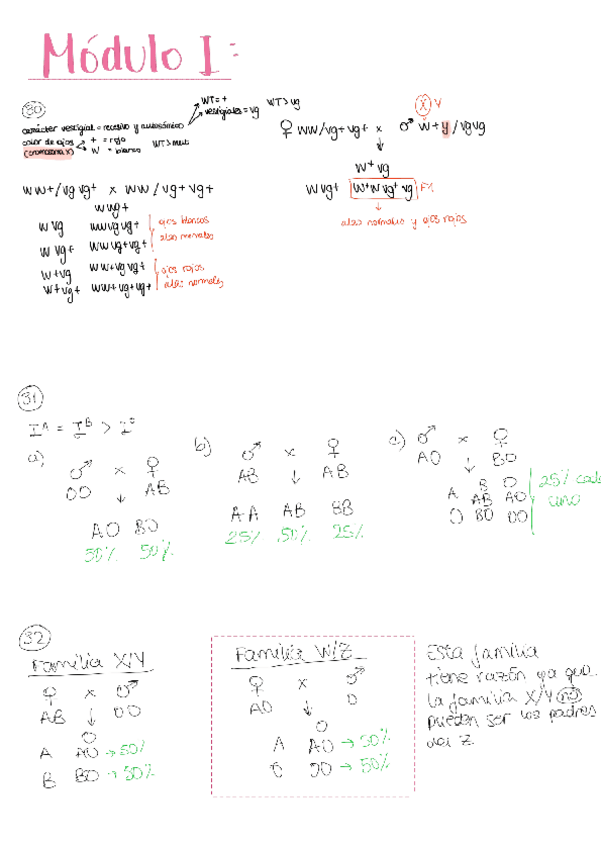 Módulo I:
30
WT = +
vestigiales = vg
WT > vg
carácter vestigial = recesivo y autosómico
color de ojos + = rojo
(cromosoma X) w = blanco WT > mut
X Y
♀ ww/vg+vg+ x ♂ w+y/vgvg
↓
w+vg
wvg+ w+w vg+vg F1
↓
alas normales y ojos rojos
ww+/vgvg+ x ww/vg+vg+
wvg+
wvg wwvgvg+ ojos blancos
wvg+ wwvg+vg+ alas normales
w+vg ww+vgvg+ ojos rojos
w+vg+ ww+vg+vg+ alas normales
31
a) ♂ x ♀
OO ↓ AB
AO BO
50% 50%
b) ♂ x ♀
AB ↓ AB
AA AB BB
25% 50% 25%
c) ♂ x ♀
AO ↓ BO
B O
A AB AO
O BO OO
25% cada
uno
32
Familia X/Y
♀ x ♂
AB ↓ OO
O
A AO → 50%
B BO → 50%
Familia W/Z
♀ x ♂
AO ↓ O
O
A AO → 50%
O OO → 50%
Esta familia
tiene razón ya que
la familia X/Y no
pueden ser los padres
del Z